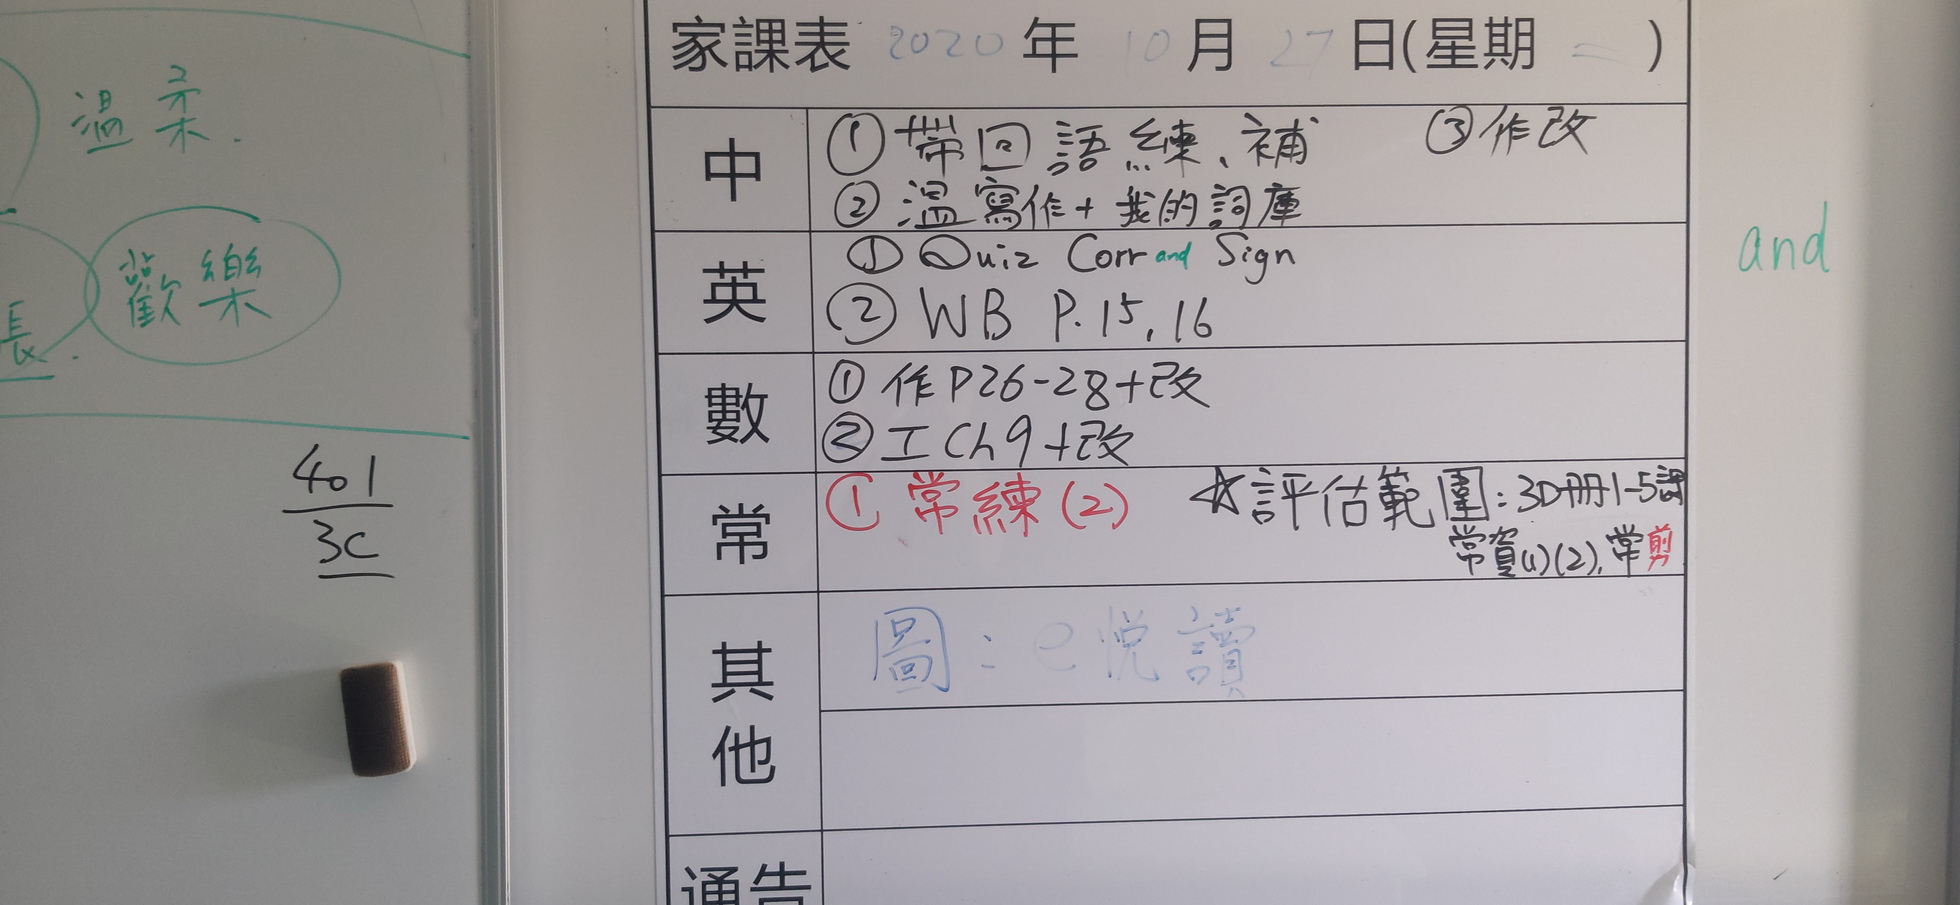 溫柔.
歡樂
長.
401
3C
家課表 2020年 10月 27日(星期 二 )
中
① 帶回語練、補 ③作改
② 溫寫作+我的詞庫
英
① Quiz Corr and Sign
② WB P.15, 16
and
數
① 作P26-28+改
② 工Ch9+改
常
① 常練(2) ☆評估範圍:3D冊1-5課
常資(1)(2), 常剪
其他
圖:e悅讀
通告